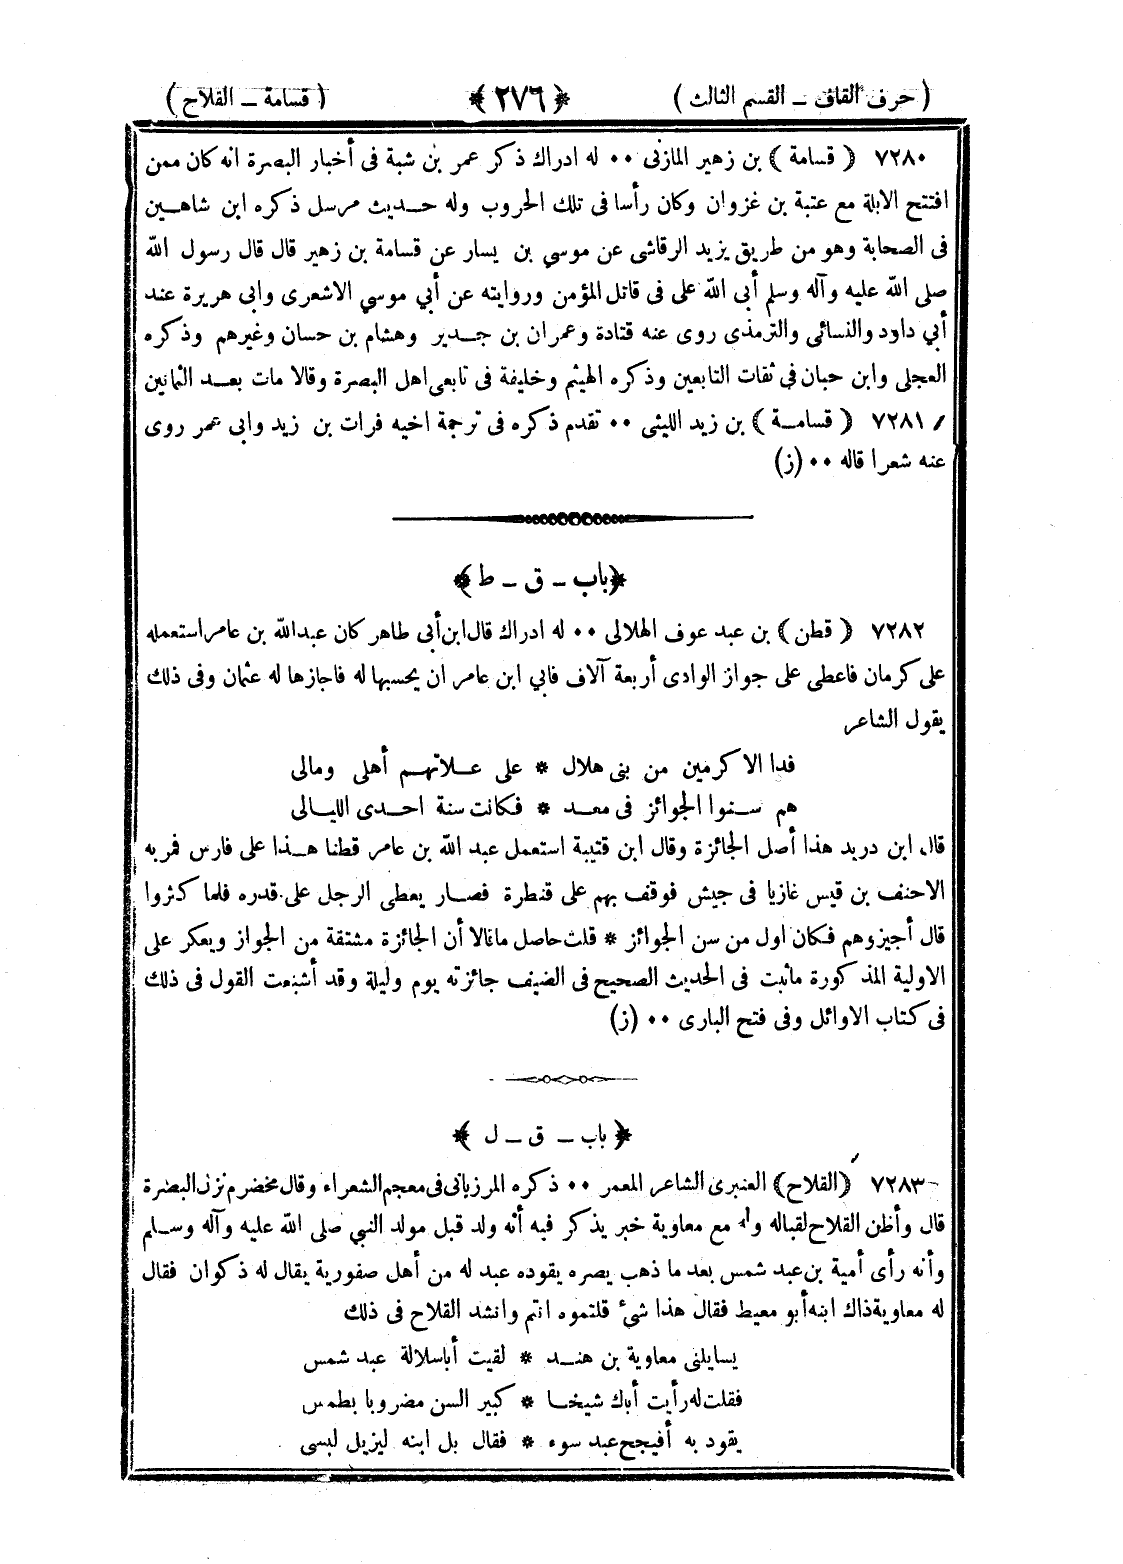 ( حرف القاف ـ القسم الثالث ) ﴿ ٢٧٦ ﴾ ( قسامة ـ القلاح )
٧٢٨٠ ﴿ قسامة ﴾ بن زهير المازنى ٠٠ له ادراك ذكر عمر بن شبة فى أخبار البصرة انه كان ممن
افتتح الابلة مع عتبة بن غزوان وكان رأسا فى تلك الحروب وله حديث مرسل ذكره ابن شاهين
فى الصحابة وهو من طريق يزيد الرقاشى عن موسي بن يسار عن قسامة بن زهير قال قال رسول الله
صلى الله عليه وآله وسلم أبى الله على فى قاتل المؤمن وروايته عن أبي موسي الاشعرى وابى هريرة عند
أبي داود والنسائى والترمذى روى عنه قتادة وعمران بن جدير وهشام بن حسان وغيرهم وذكره
العجلى وابن حبان في ثقات التابعين وذكره الهيثم وخليفة فى تابعى اهل البصرة وقالا مات بعد الثمانين
٧٢٨١ ﴿ قسامة ﴾ بن زيد الليثى ٠٠ تقدم ذكره فى ترجمة اخيه فرات بن زيد وابى عمر روى
عنه شعرا قاله ٠٠ (ز)
﴿ باب ـ ق ـ ط ﴾
٧٢٨٢ ﴿ قطن ﴾ بن عبد عوف الهلالى ٠٠ له ادراك قال ابن أبى طاهر كان عبدالله بن عامر استعمله
على كرمان فاعطى على جواز الوادى أربعة آلاف فابي ابن عامر ان يحسبها له فاجازها له عثمان وفى ذلك
يقول الشاعر
فدا الاكرمين من بنى هلال * على علاتهم أهلى ومالى
هم سنوا الجوائز فى معد * فكانت سنة احدى الليالى
قال ابن دريد هذا أصل الجائزة وقال ابن قتيبة استعمل عبد الله بن عامر قطنا هذا على فارس فمر به
الاحنف بن قيس غازيا فى جيش فوقف بهم على قنطرة فصار يعطى الرجل على قدره فلما كثروا
قال أجيزوهم فكان اول من سن الجوائز * قلت حاصل ماقالا أن الجائزة مشتقة من الجواز ويعكر على
الاولية المذكورة ماثبت فى الحديث الصحيح فى الضيف جائزته يوم وليلة وقد أشبعت القول فى ذلك
فى كتاب الاوائل وفى فتح البارى ٠٠ (ز)
﴿ باب ـ ق ـ ل ﴾
٧٢٨٣ ﴿القلاح﴾ العنبرى الشاعر المعمر ٠٠ ذكره المرزبانى فى معجم الشعراء وقال مخضرم نزل البصرة
قال وأظن القلاح لقباله وله مع معاوية خبر يذكر فيه أنه ولد قبل مولد النبي صلى الله عليه وآله وسلم
وأنه رأى أمية بن عبد شمس بعد ما ذهب بصره يقوده عبد له من أهل صفورية يقال له ذكوان فقال
له معاوية ذاك ابنه أبو معيط فقال هذا شئ قلتموه انتم وانشد القلاح فى ذلك
يسايلنى معاوية بن هند * لقيت أباسلالة عبد شمس
فقلت له رأيت أباك شيخا * كبير السن مضروبا بطمس
يقود به أفيجح عبد سوء * فقال بل ابنه ليزيل لبسى